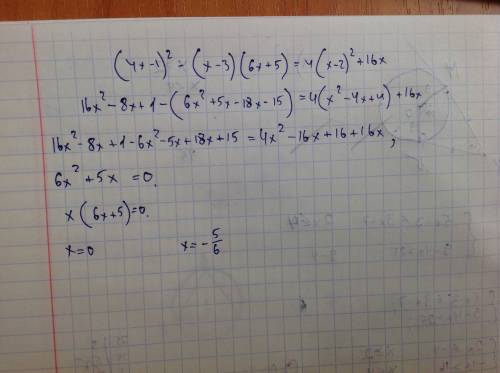 (4x-1)² - (x-3)(6x+5) = 4(x-2)² + 16x
16x² - 8x + 1 - (6x² + 5x - 18x - 15) = 4(x² - 4x + 4) + 16x
16x² - 8x + 1 - 6x² - 5x + 18x + 15 = 4x² - 16x + 16 + 16x,
6x² + 5x = 0.
x(6x+5) = 0.
x = 0 x = -5/6